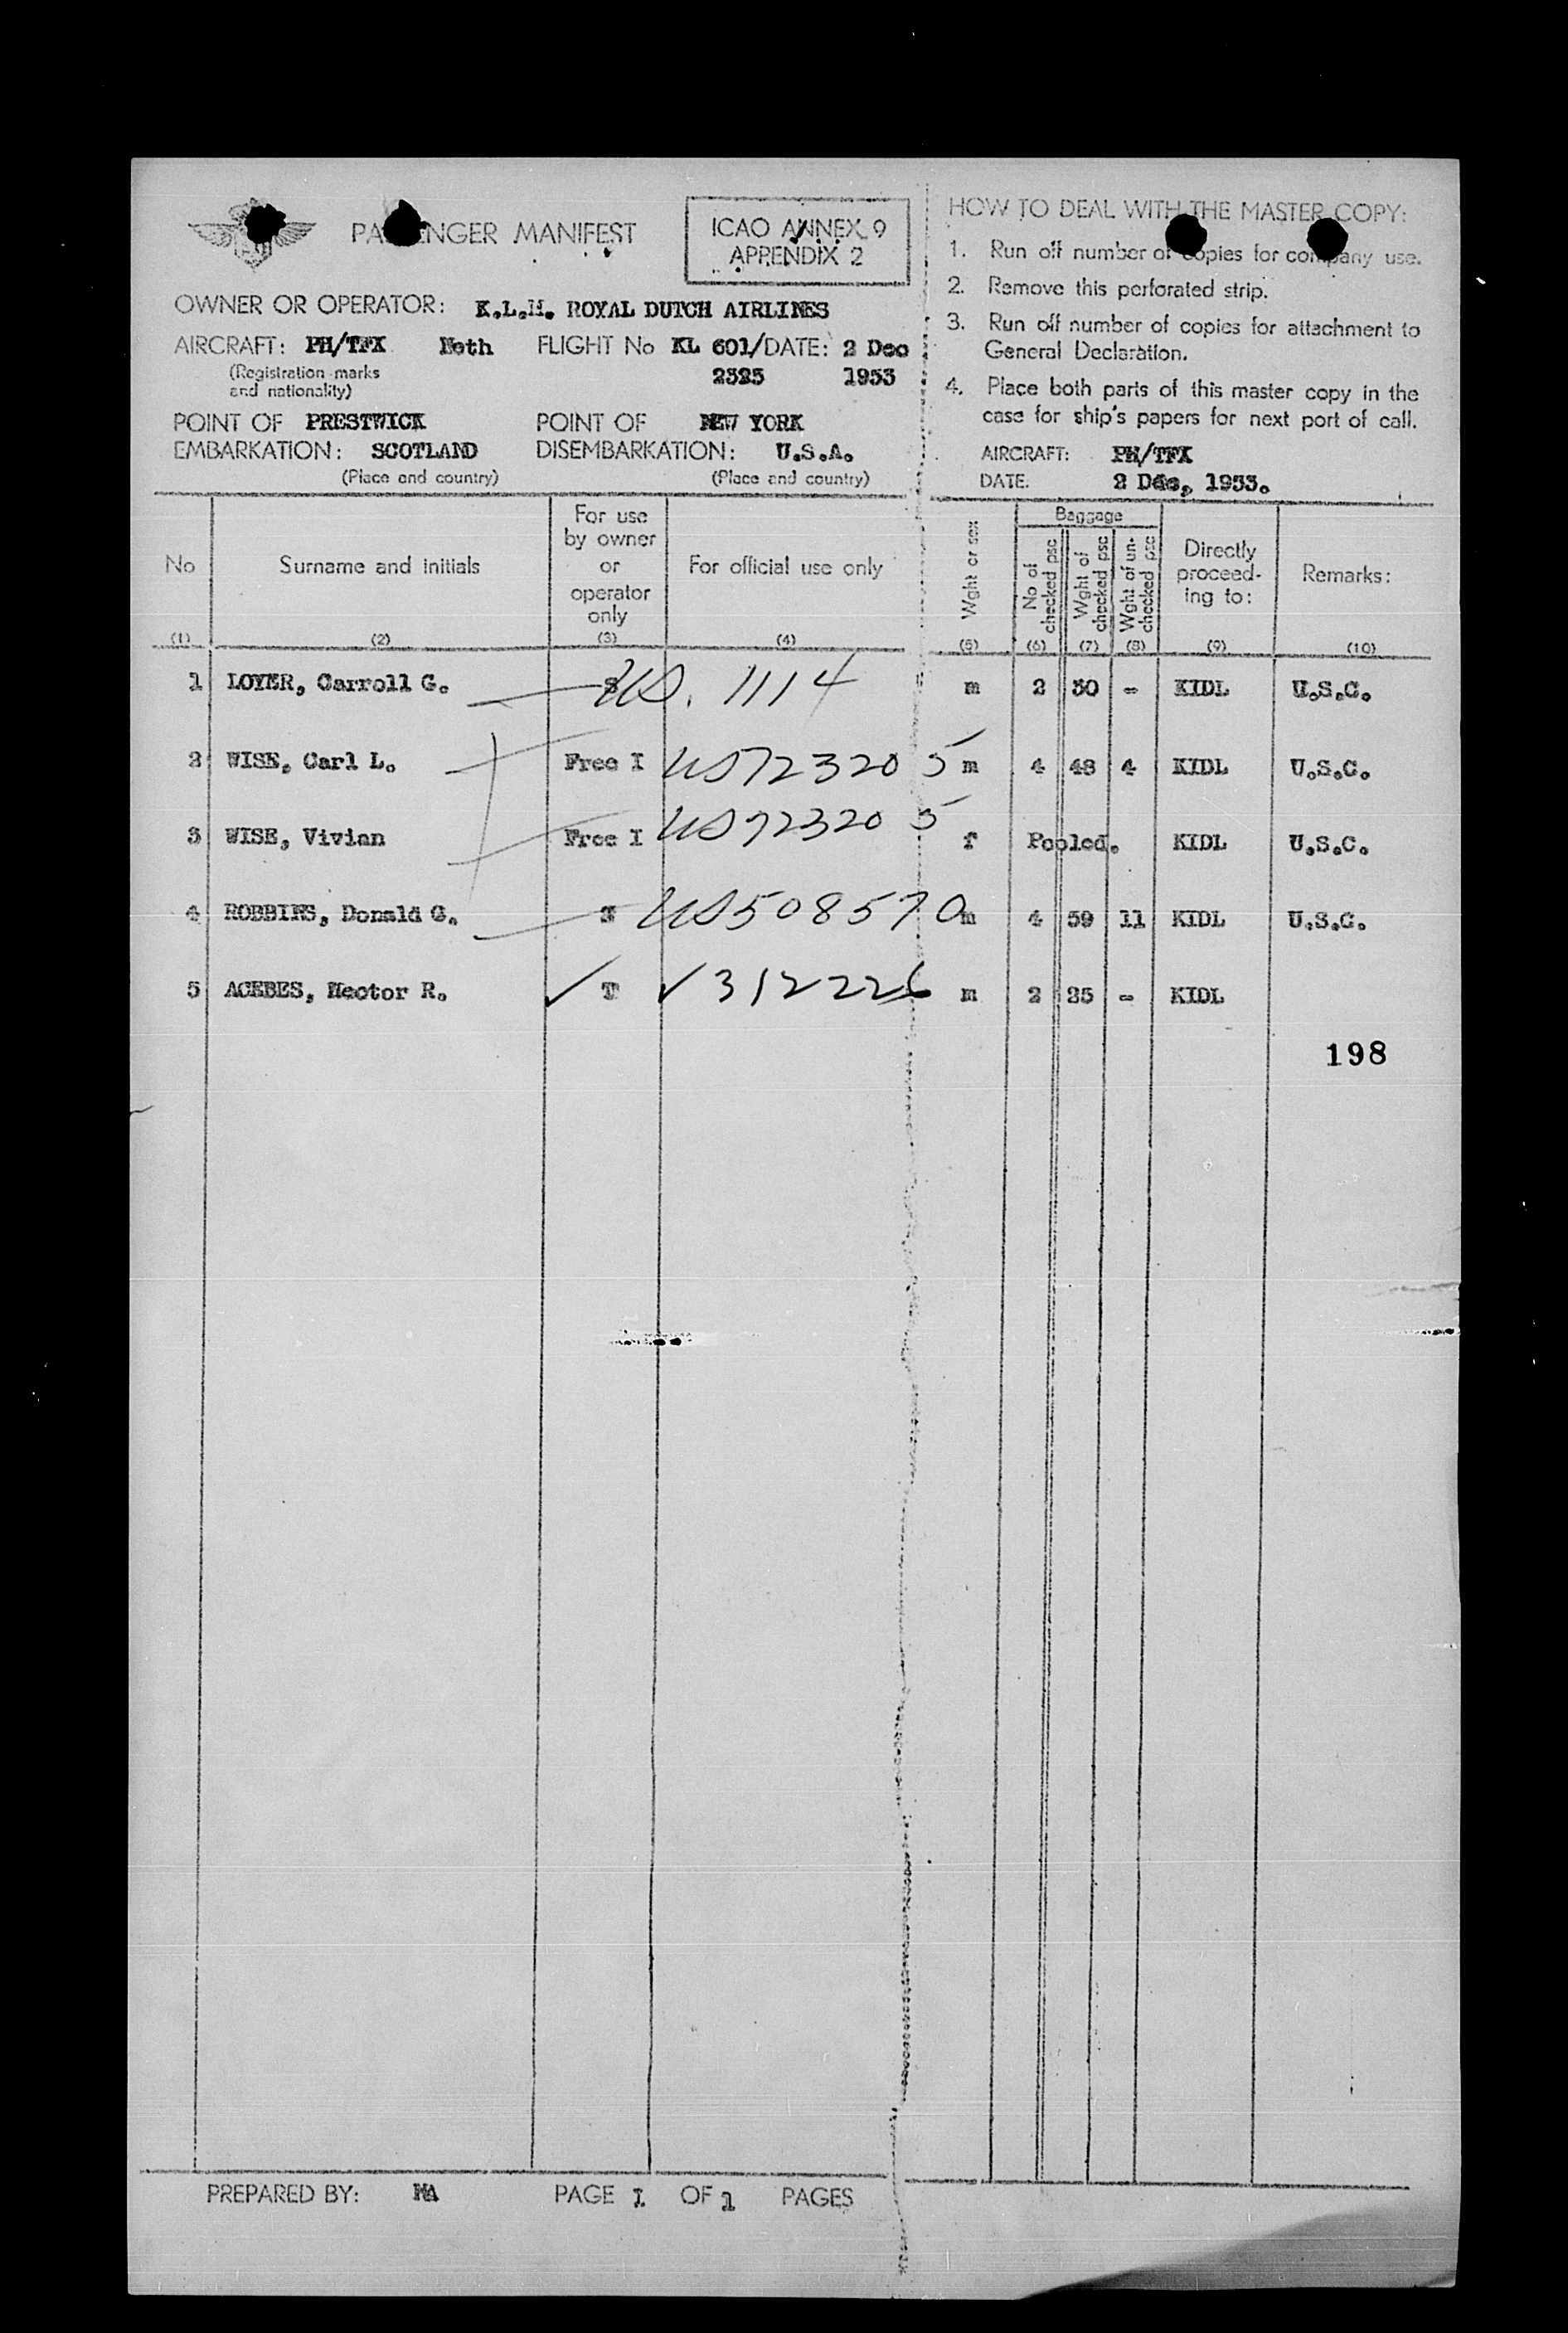 PASSENGER MANIFEST
ICAO ANNEX 9
APPENDIX 2
OWNER OR OPERATOR: K.L.M. ROYAL DUTCH AIRLINES
AIRCRAFT: PH/TFX Neth FLIGHT No KL 601/DATE: 2 Dec
(Registration marks
and nationality) 2325 1953
POINT OF PRESTWICK POINT OF NEW YORK
EMBARKATION: SCOTLAND DISEMBARKATION: U.S.A.
(Place and country) (Place and country)
HOW TO DEAL WITH THE MASTER COPY:
1. Run off number of copies for company use.
2. Remove this perforated strip.
3. Run off number of copies for attachment to
General Declaration.
4. Place both parts of this master copy in the
case for ship's papers for next port of call.
AIRCRAFT: PH/TFX
DATE. 2 Dec, 1953.
No Surname and initials For use by owner or operator only For official use only Wght or sex Baggage No of checked psc Wght of checked psc Wght of un-checked psc Directly proceed-ing to: Remarks:
(1) (2) (3) (4) (5) (6) (7) (8) (9) (10)
1 LOYER, Carroll G. S US. 1114 m 2 30 - KIDL U.S.C.
2 WISE, Carl L. Free I US723205 m 4 48 4 KIDL U.S.C.
3 WISE, Vivian Free I US723205 f Pooled. KIDL U.S.C.
4 ROBBINS, Donald G. US508570 m 4 59 11 KIDL U.S.C.
5 ACEBES, Hector R. ✓ T ✓ 312226 m 2 25 - KIDL
198
PREPARED BY: MA PAGE 1 OF 1 PAGES